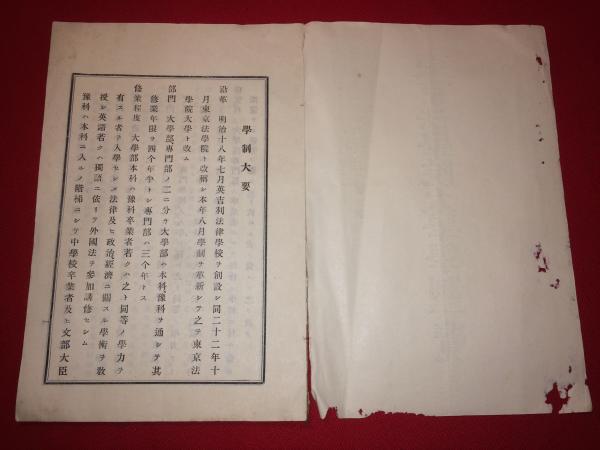 學制大要
沿革 明治十八年七月英吉利法律學校ヲ創設シ同二十二年十
月東京法學院ト改稱シ本年八月學制ヲ革新シテ之ヲ東京法
學院大學ト改ム
部門 大學部、專門部ノ二ニ分ケ大學部ハ本科、豫科ヲ通シテ其
修業年限ヲ四個年半トシ專門部ハ三個年トス
修業程度 大學部本科ハ豫科卒業者若クハ之ト同等ノ學力ヲ
有スル者ヲ入學セシメ法律及ヒ政治、經濟ニ關スル學術ヲ敎
授シ英語若クハ獨語ニ依リテ外國法ヲ參加講修セシム
豫科ハ本科ニ入ルノ階梯ニシテ中學校卒業者及ヒ文部大臣